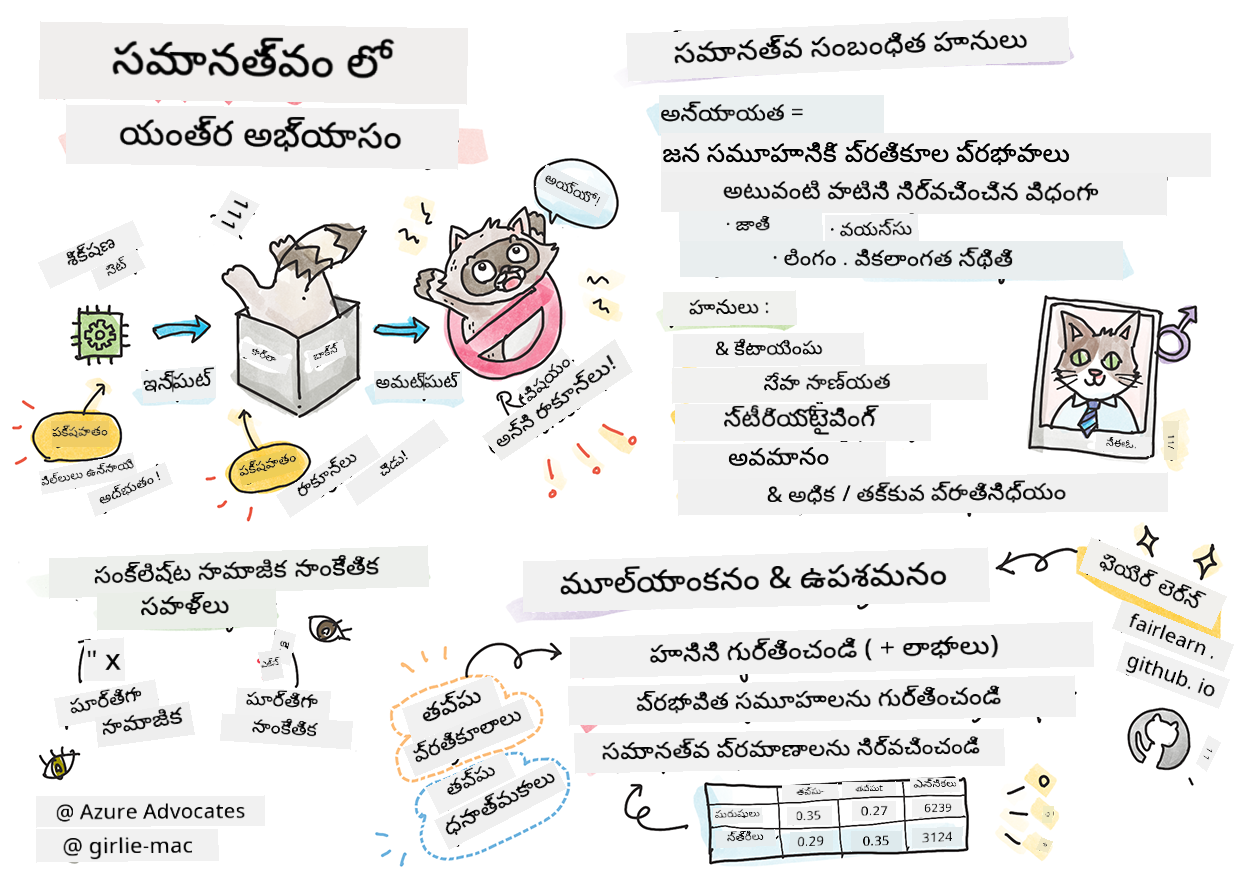 సమానత్వం లో
యంత్ర అభ్యాసం
శిక్షణ
సెట్
ఇన్‌పుట్
అవుట్‌పుట్
అయ్యో!
విషయం.
అన్ని రాకూన్‌లు!
పక్షపాతం
పిల్లులు ఉన్నాయి
అద్భుతం !
పక్షపాతం
రాకూన్‌లు
చెడు!
సమానత్వ సంబంధిత హానులు
అన్యాయత =
జన సమూహానికి ప్రతికూల ప్రభావాలు
అటువంటి వాటిని నిర్వచించిన విధంగా
· జాతి · వయస్సు
· లింగం . వికలాంగత స్థితి
హానులు :
& కేటాయింపు
సేవా నాణ్యత
స్టీరియోటైపింగ్
అవమానం
& అధిక / తక్కువ ప్రాతినిధ్యం
సంక్లిష్ట సామాజిక సాంకేతిక
సవాళ్లు
" x
పూర్తిగా
సామాజిక
పూర్తిగా
సాంకేతిక
@ Azure Advocates
@ girlie-mac
మూల్యాంకనం & ఉపశమనం
ఫెయిర్ లెర్న్
fairlearn .
github. io
హానిని గుర్తించండి ( + లాభాలు)
ప్రభావిత సమూహాలను గుర్తించండి
సమానత్వ ప్రమాణాలను నిర్వచించండి
తప్పు
ప్రతికూలాలు
తప్పు
ధనాత్మకాలు
పురుషులు 0.35 0.27 6239
స్త్రీలు 0.29 0.35 3124